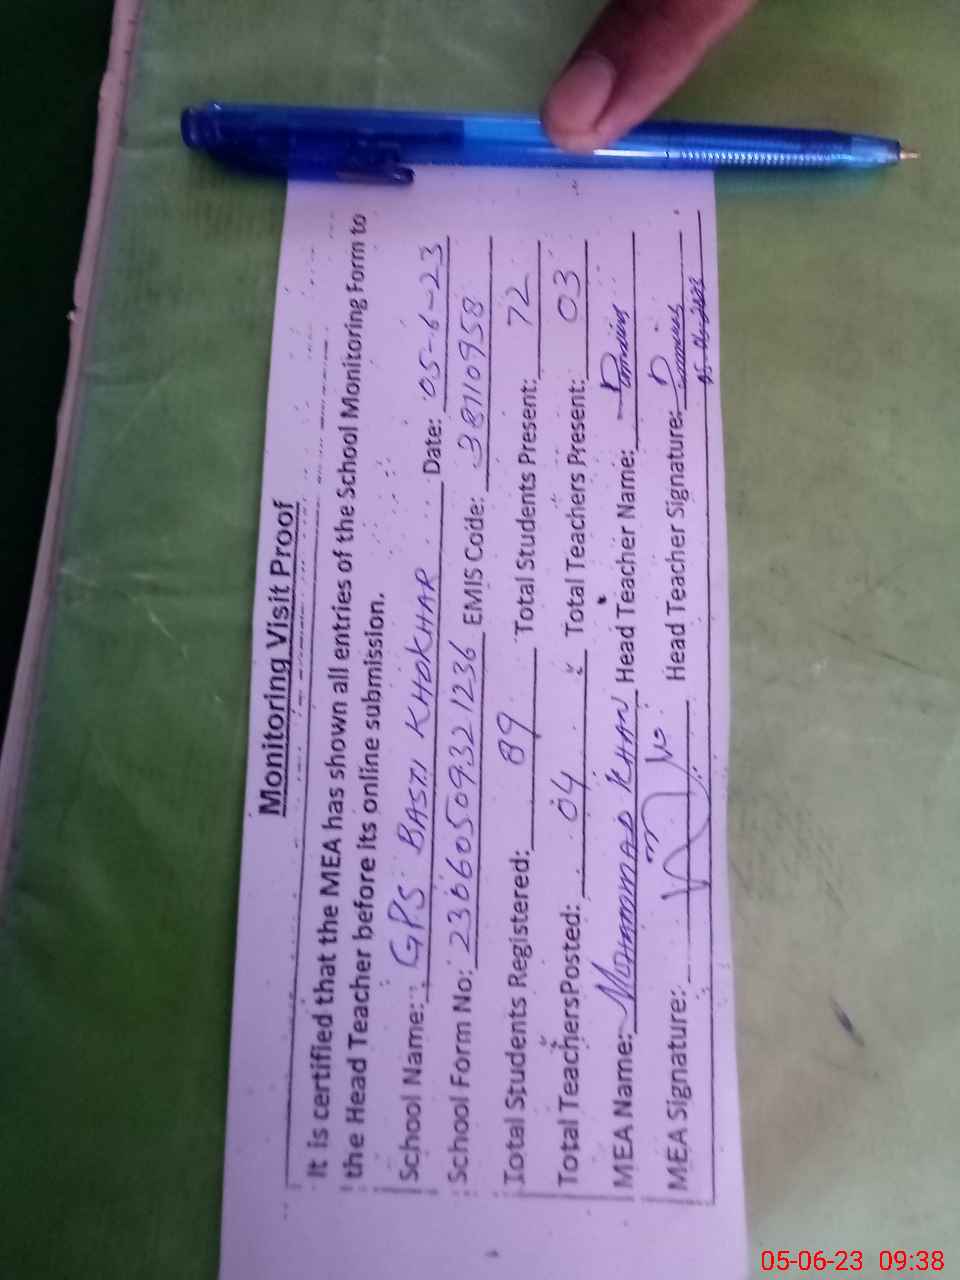 Monitoring Visit Proof
It is certified that the MEA has shown all entries of the School Monitoring Form to
the Head Teacher before its online submission.
School Name: GPS BASTI KHOKHAR Date: 05-6-23
School Form No: EMIS Code: 38110958
Total Students Registered: 89 Total Students Present: 72
Total Teachers Posted: 04 Total Teachers Present: 03
MEA Name: MOHAMMAD KHAN Head Teacher Name:
MEA Signature: Head Teacher Signature:
05-06-23 09:38